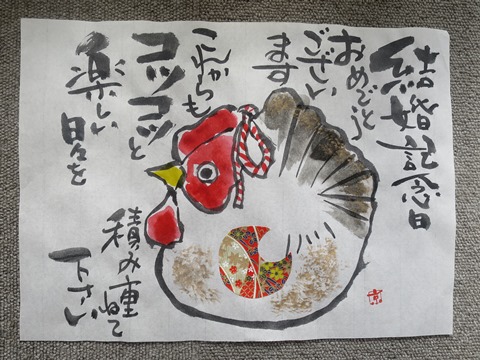 結婚記念日
おめでとう
ござい
ます
これからも
コツコツと
楽しい
日々を
積み重ねて
下さい